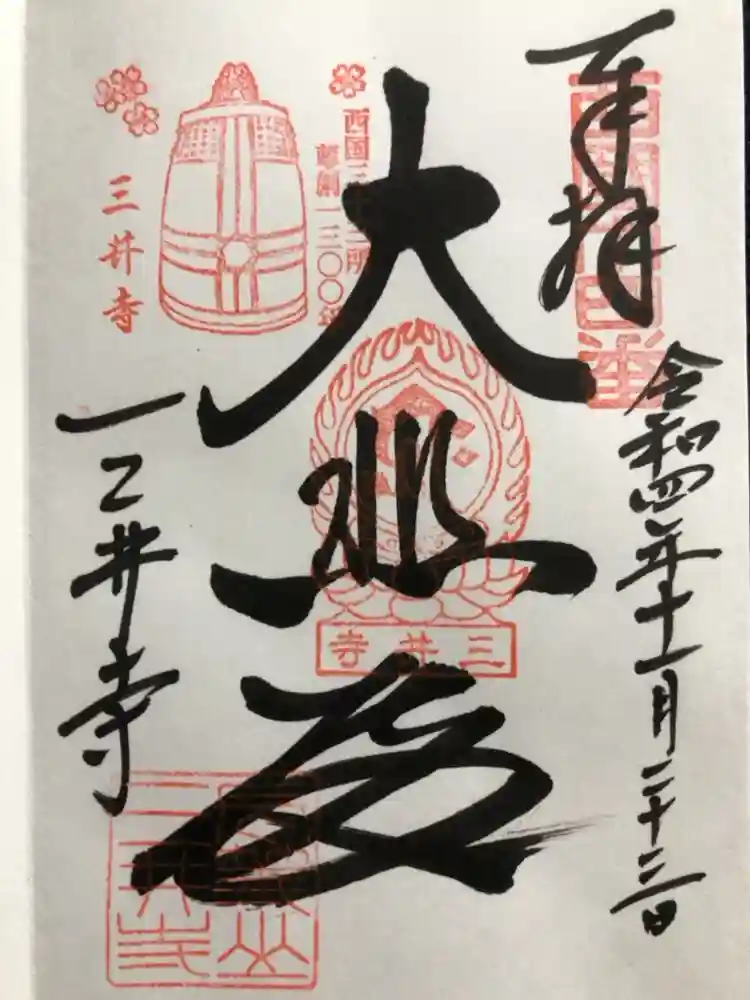 奉拝
西国十四番
令和四年十一月二十三日
西国三十三所
草創一三〇〇年
大悲殿
三井寺
三井寺
三井寺